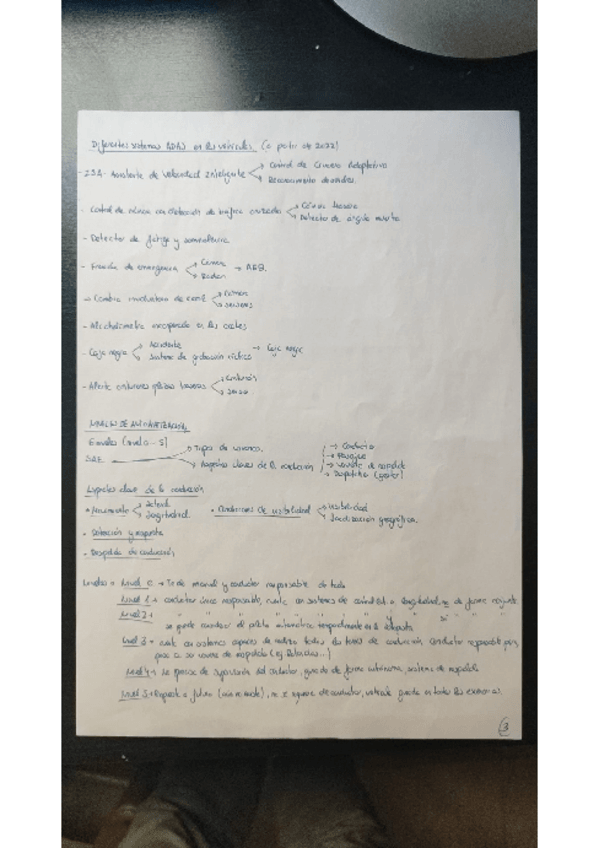 Diferentes sistemas ADAS en los vehículos (a partir de 2022)
- ISA - Asistente de Velocidad Inteligente → Control de Crucero Adaptativo
→ Reconocimiento de señales.
- Control de con detección de tráfico cruzado → Cámara trasera
→ Detector de ángulo muerto
- Detector de fatiga y somnolencia
- Frenada de emergencia → Cámara → AEB.
→ Radar
→ Cambio involuntario de carril → Cámara
→ sensores
- Alcoholímetro en los coches
- Caja negra → Accidente → Caja negra
→ sistema de grabación cíclico
- Alerta cinturones plazas traseras → Cinturón
NIVELES DE AUTOMATIZACIÓN
6 niveles (nivel 0 - 5)
SAE → Tipos de usuarios.
→ Aspectos claves de la conducción
→ Conductor
→ Pasajero
→ usuario de respaldo
→ (gestor)
Aspectos clave de la conducción
• Movimiento → Lateral
→ Longitudinal
• Condiciones de visibilidad → visibilidad
→ localización geográfica.
• Detección y respuesta
• Respaldo de conducción
Niveles = Nivel 0 → Todo manual y conductor responsable de todo
Nivel 1 → conductor único responsable, cuenta con sistemas de control lat. o longitudinal, no de forma conjunta
Nivel 2 → " " " " " " " y " si " "
se puede el piloto automático temporalmente en
Nivel 3 → cuenta con sistemas capaces de realizar todas las tareas de conducción, conductor responsable pero
pasa a ser usuario de respaldo
Nivel 4 → No precisa de supervisión del conductor, guiado de forma autónoma, sistema de respaldo
Nivel 5 → Respecto a futuro, no se requiere de conductor, vehículo en todos los
3